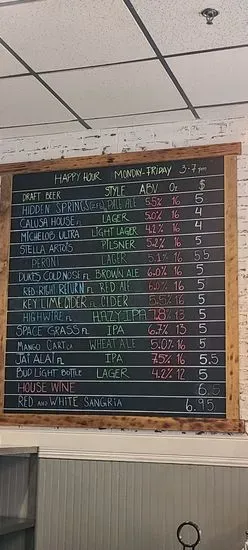 HAPPY HOUR MONDAY-FRIDAY 3-7pm
DRAFT BEER STYLE ABV Oz $
HIDDEN SPRINGS PALE ALE 5.5% 16 5
CALUSA HOUSE FL LAGER 5.0% 16 4
MICHELOB ULTRA LIGHT LAGER 4.2% 16 4
STELLA ARTOIS PILSNER 5.2% 16 5
PERONI LAGER 5.1% 16 5.5
DUKES COLD NOSE FL BROWN ALE 6.0% 16 5
RED RIGHT RETURN FL RED ALE 6.0% 16 5
KEY LIME CIDER FL CIDER 5.5% 16 5
HIGHWIRE FL HAZY IPA 7.8% 13 5
SPACE GRASS FL IPA 6.7% 13 5
MANGO CART CA WHEAT ALE 5.0% 16 5
JAI ALAI FL IPA 7.5% 16 5.5
BUD LIGHT BOTTLE LAGER 4.2% 12 5
HOUSE WINE
RED AND WHITE SANGRIA 6.95